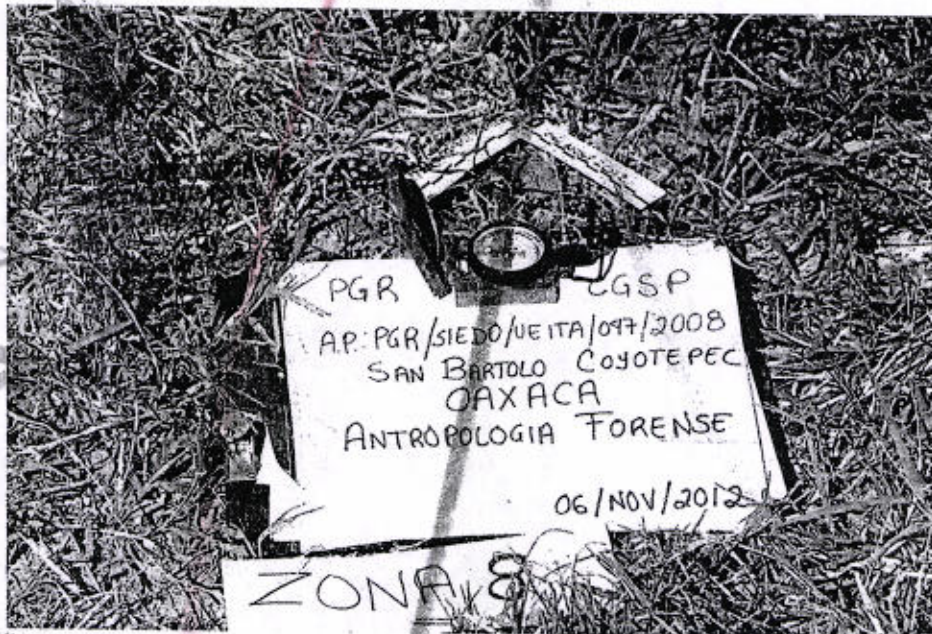 PGR CGSP
A.P: PGR/SIEDO/UEITA/097/2008
SAN BARTOLO COYOTEPEC
OAXACA
ANTROPOLOGIA FORENSE
06/NOV/2012
ZONA 8